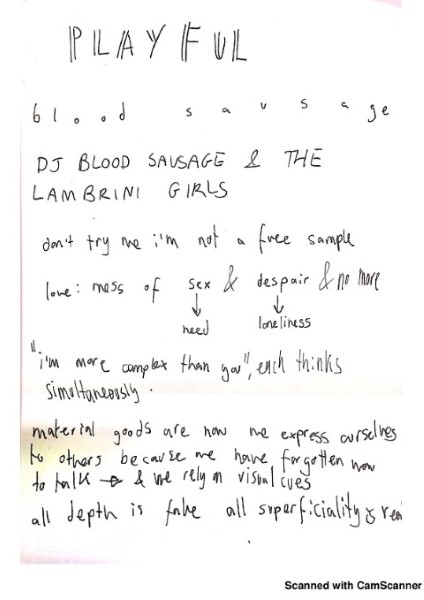 PLAYFUL
blood sausage
DJ BLOOD SAUSAGE & THE
LAMBRINI GIRLS
don't try me i'm not a free sample
love: mess of sex & despair & no more
need loneliness
"i'm more complex than you", each thinks
simultaneously.
material goods are how we express ourselves
to others because we have forgotten how
to talk → & we rely on visual cues
all depth is fake all superficiality is real
Scanned with CamScanner